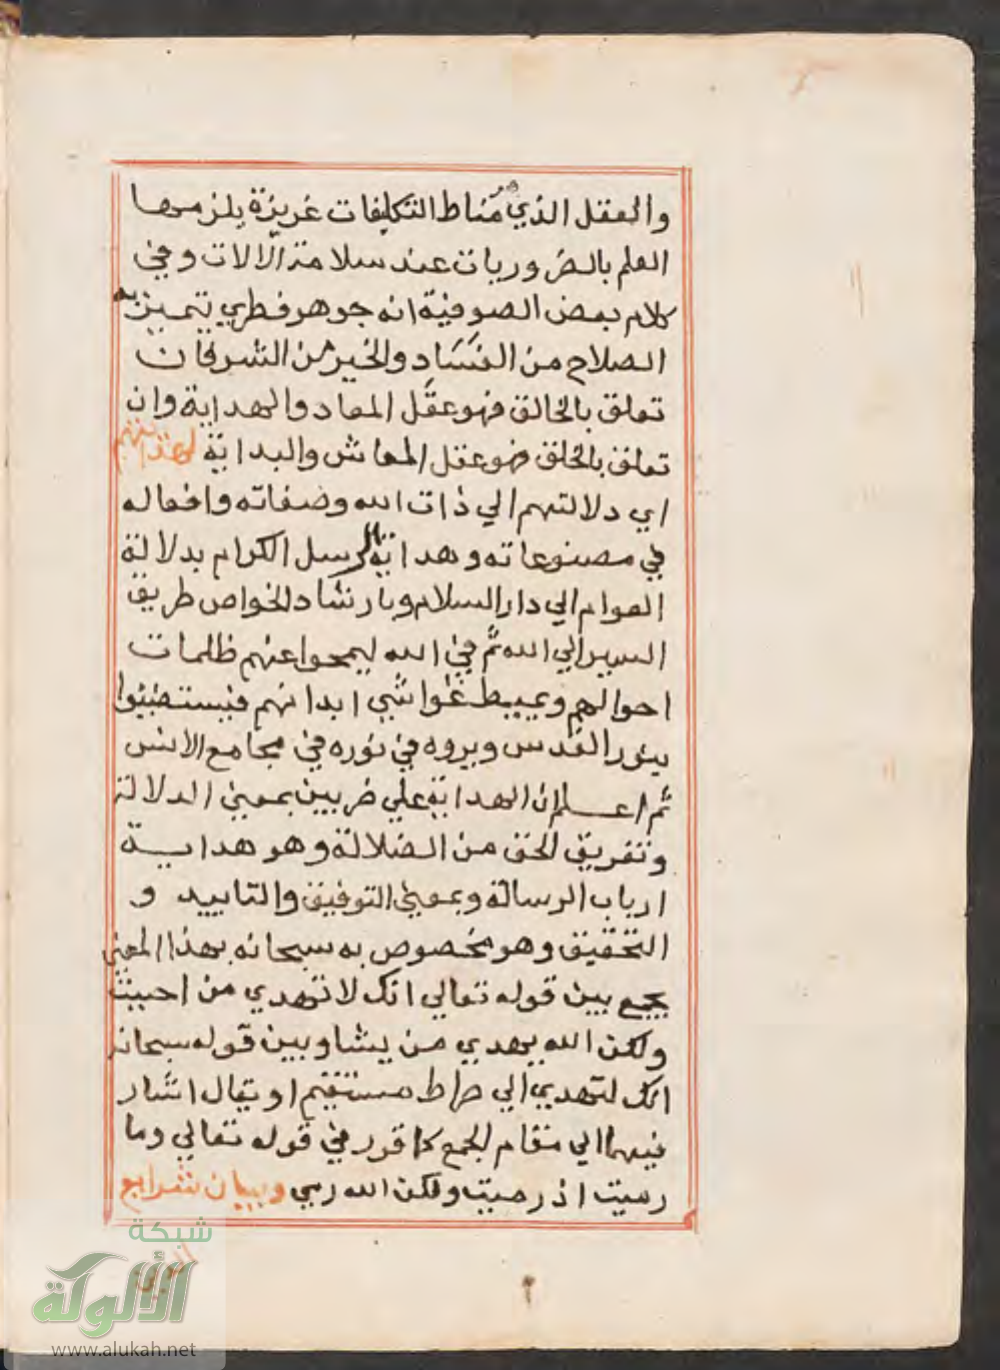 والعقل الذي هو مناط التكليفات غريزة يلزمها
العلم بالضروريات عند سلامة الآلات وفي
كلام بعض الصوفية انه جوهر فطري يتميز به
الصلاح من الفسَاد والخير من الشر فان
تعلق بالخالق فهو عقل المعاد والهداية وان
تعلق بالخلق فهو عقل المعاش والبداية لهدايتهم
اي دلالتهم الي ذات الله وصفاته وافعاله
في مصنوعاته وهداية الرسل الكرام بدلالة
العوام الي دار السلام وبارشاد الخواص طريق
السير الي الله ثم في الله ليمحوا عنهم ظلمات
احوالهم ويميط غواشي ابدانهم فيستضيئوا
بنور القدس ويروه في نوره في مجامع الانس
ثم اعلم ان الهداية علي ضربين بمعني الدلالة
وتفريق الحق من الضلالة وهو هداية
ارباب الرسالة وبمعني التوفيق والتاييد و
التحقيق وهو مخصوص به سبحانه بهذا المعني
يجمع بين قوله تعالي انك لا تهدي من احببت
ولكن الله يهدي من يشا وبين قوله سبحانه
انك لتهدي الي صراط مستقيم او يقال اشار
فيهما الي مقام الجمع كما قرر في قوله تعالي وما
رميت اذ رميت ولكن الله رمي وبيان شرايع
الدين
شبكة
الألوكة
www.alukah.net